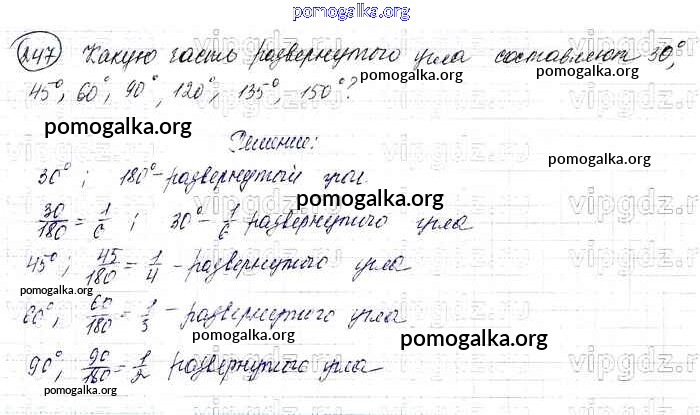 pomogalka.org
247 Какую часть развернутого угла составляют 30°,
pomogalka.org
pomogalka.org
45°, 60°, 90°, 120°, 135°, 150°?
pomogalka.org
Решение:
pomogalka.org
30°; 180° - развернутый угол.
pomogalka.org
30/180 = 1/6; 30° - 1/6 развернутого угла
45°; 45/180 = 1/4 - развернутого угла
pomogalka.org
60°, 60/180 = 1/3 - развернутого угла
pomogalka.org
pomogalka.org
90°, 90/180 = 1/2 развернутого угла
pomogalka.org
vipgdz.ru vipgdz.ru
vipgdz.ru vipgdz.ru
vipgdz.ru vipgdz.ru
vipgdz.ru vipgdz.ru
vipgdz.ru vipgdz.ru
vipgdz.ru vipgdz.ru